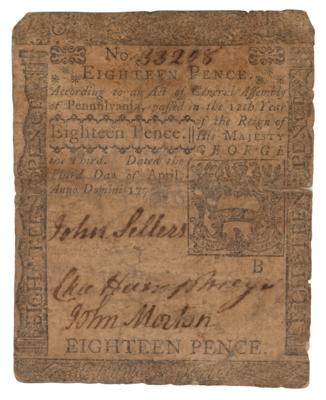 No. 33208
EIGHTEEN PENCE.
According to an Act of General Assembly
of Pennsylvania, passed in the 12th Year
of the Reign of
Eighteen Pence.
His MAJESTY
GEORGE
the Third. Dated the
Third Day of April,
Anno Domini 177
John Sellers
B
Cha Humphreys
John Morton
EIGHTEEN PENCE.
EIGHTEEN PENCE
EIGHTEEN PENCE